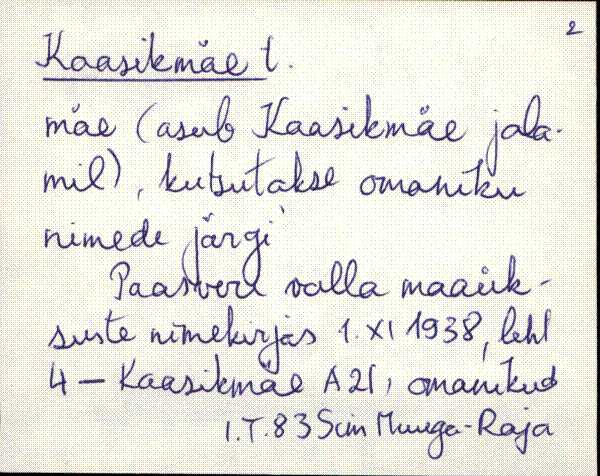 2
Kaasikmäe t.
mäe (asub Kaasikmäe jala-
mil), kutsutakse omaniku
nimede järgi
Paasvere valla maaük-
suste nimekirjas 1. XI 1938, lehl
4 – Kaasikmäe A21, omanikud
I.T.83 Sim Muuga-Raja